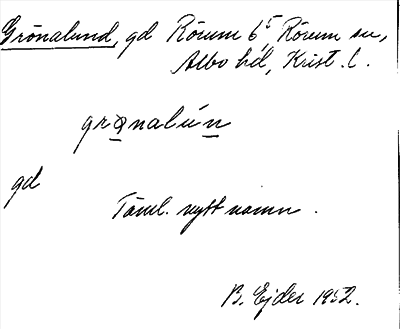 Grönalund, gd Rörum 6⁵ Rörum sn,
Albo hd, Krist. l.
grǫnalún
gd
Täml. nytt namn.
B. Ejder 1952.